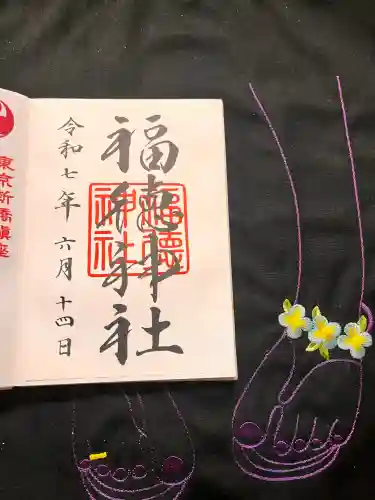 福徳神社
福徳
神社
令和七年 六月 十四日
東京新橋鎮座